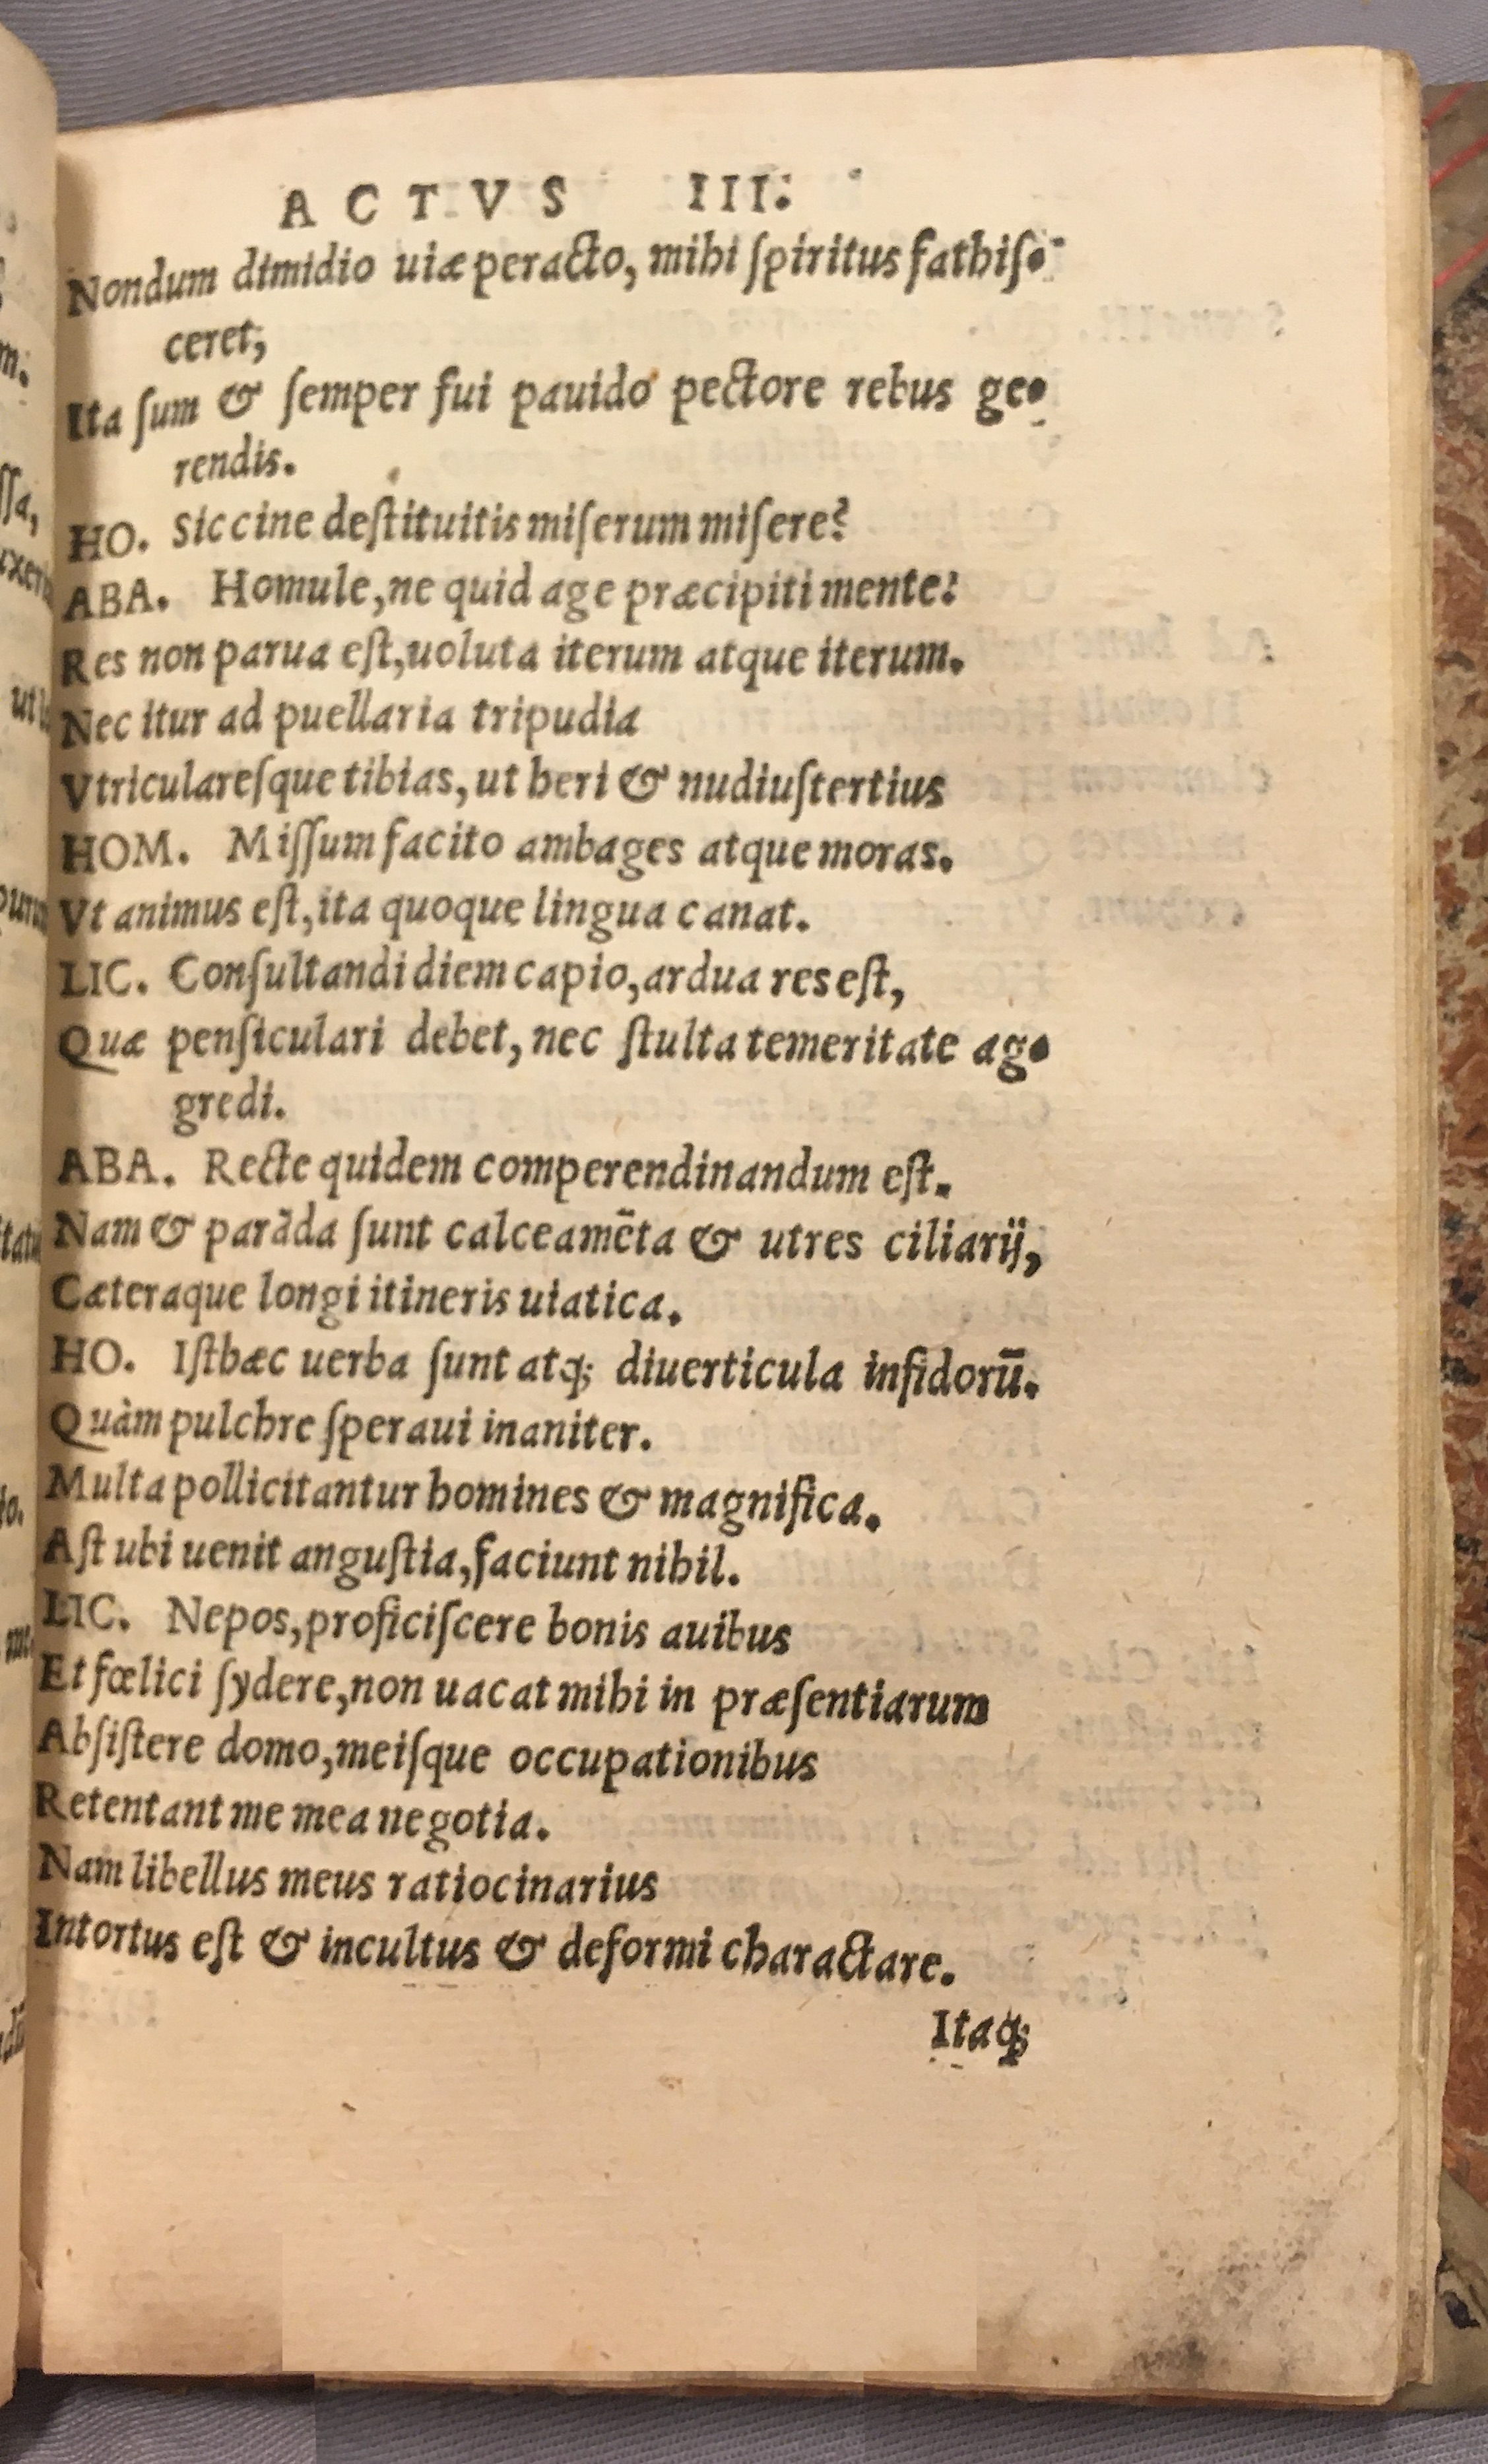 ACTVS III.
Nondum dimidio uiæ peracto, mihi ſpiritus fathiſ-
ceret;
Ita ſum & ſemper fui pauido pectore rebus ge-
rendis.
HO. Siccine deſtituitis miſerum miſere?
ABA. Homule, ne quid age præcipiti mente:
Res non parua eſt, uoluta iterum atque iterum.
Nec itur ad puellaria tripudia
Vtriculareſque tibias, ut heri & nudiuſtertius
HOM. Miſſum facito ambages atque moras.
Vt animus eſt, ita quoque lingua canat.
LIC. Conſultandi diem capio, ardua res eſt,
Quæ penſiculari debet, nec ſtulta temeritate ag-
gredi.
ABA. Recte quidem comperendinandum eſt.
Nam & parãda ſunt calceamẽta & utres ciliarij,
Cæteraque longi itineris uiatica.
HO. Iſthæc uerba ſunt atq; diuerticula infidorũ.
Quàm pulchre ſperaui inaniter.
Multa pollicitantur homines & magnifica.
Aſt ubi uenit anguſtia, faciunt nihil.
LIC. Nepos, proficiſcere bonis auibus
Et fœlici ſydere, non uacat mihi in præſentiarum
Abſiſtere domo, meiſque occupationibus
Retentant me mea negotia.
Nam libellus meus ratiocinarius
Intortus eſt & incultus & deformi charactare.
Itaq;